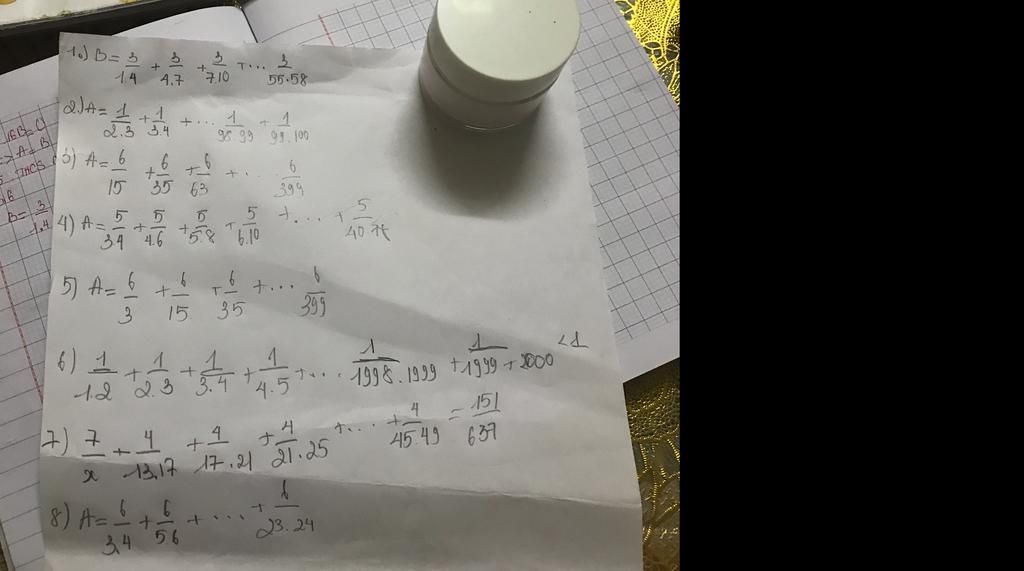 1.) B = 3/1.4 + 3/4.7 + 3/7.10 + ... 3/55.58
2) A = 1/2.3 + 1/3.4 + ... 1/98.99 + 1/99.100
3) A = 6/15 + 6/35 + 6/63 + ... 6/399
4) A = 5/3.4 + 5/4.6 + 5/5.8 + 5/6.10 + ... + 5/40
5) A = 6/3 + 6/15 + 6/35 + ... 6/399
6) 1/1.2 + 1/2.3 + 1/3.4 + 1/4.5 + ... 1/1998.1999 + 1/1999+2000 < 1
7) 7/x + 4/13.17 + 4/17.21 + 4/21.25 + ... + 4/45.49 = 151/637
8) A = 6/3.4 + 6/5.6 + ... + 6/23.24
B = 3/1.4